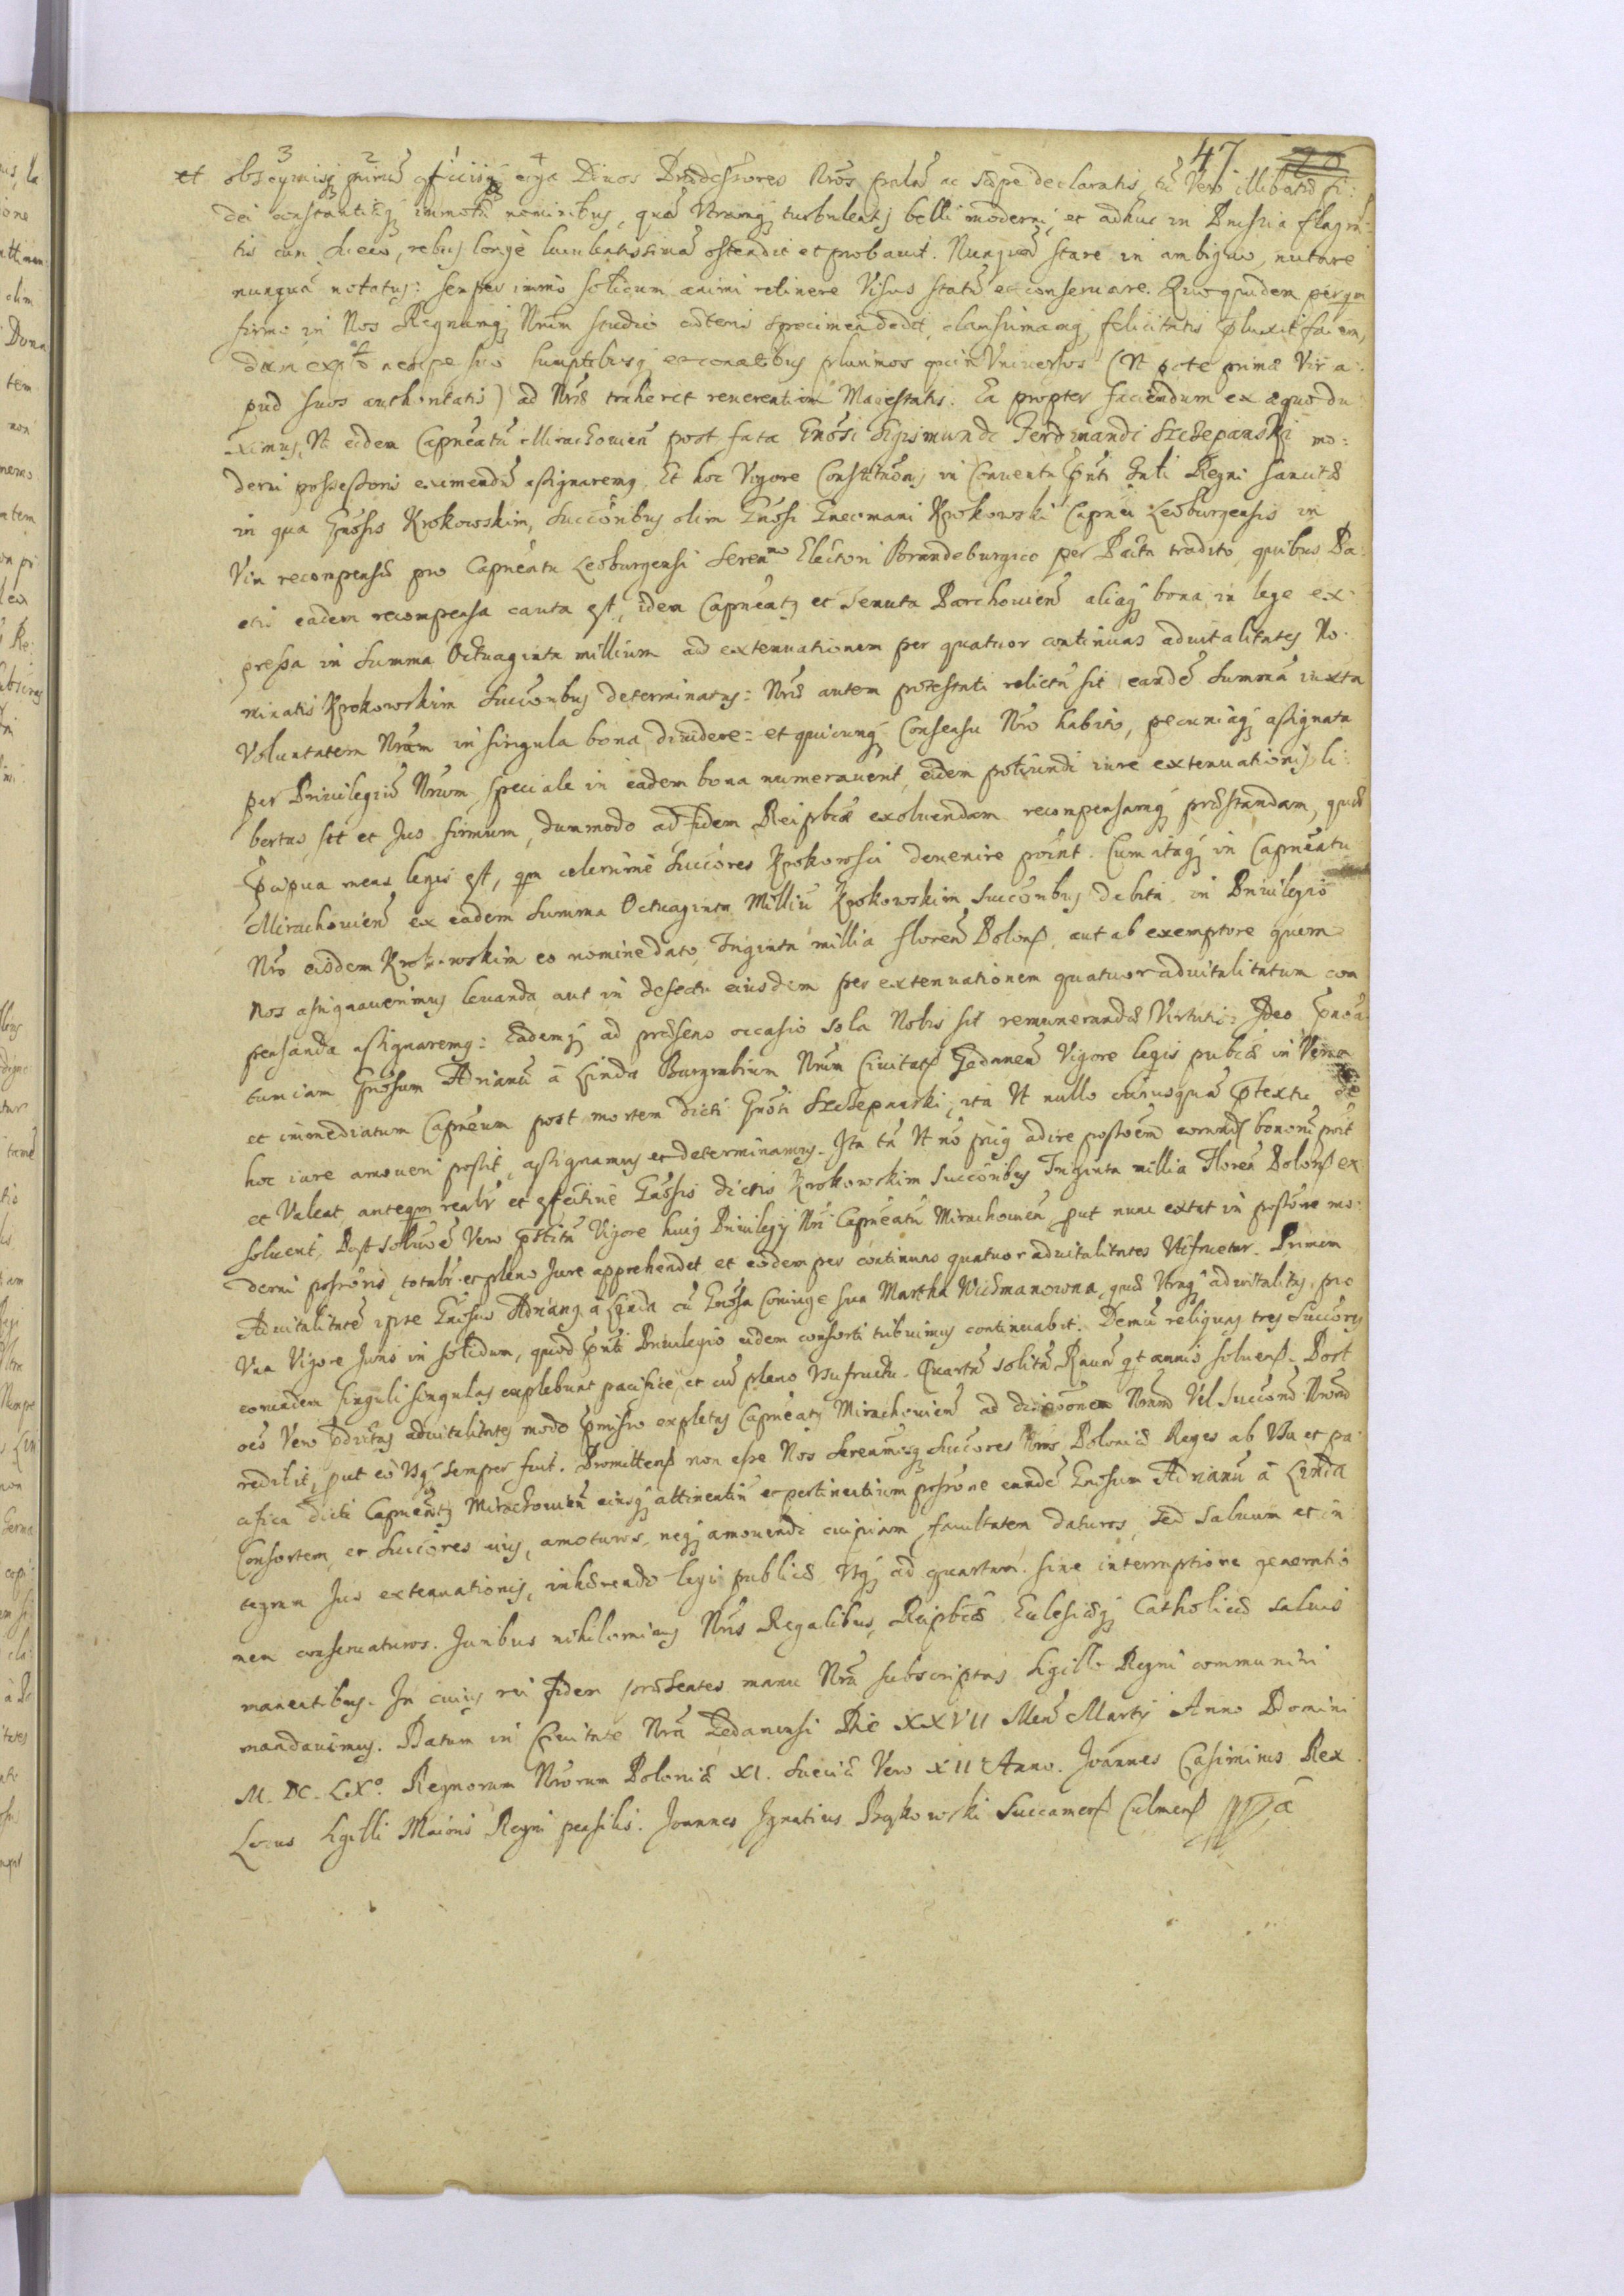 47
et obsequiisq̃ primũ officiisq̃ erga Divos Prædecessores Nros palã ac sæpe declaratis, tũ Vero illibatæ fi:
dei constantiæq̃ immotæ nominibus, quã Utramq̃ turbulentj belli moderni, et adhuc in Prussia flagran:
tis cum Sueco, rebus longè luculentissimã ostendit et probavit. Nunquã stare in ambiguo, nutare
nunquã notatus: semper immò solidum animi retinere Visus statũ et conservare. Quo quidem perqm
firmo in Nos Regnumq̃ Nrum studio cæteris specimen dedit, clarissimamq̃ felicitatis
dum suo sumptibusq̃ et conatibus plurimos quin Universos (Ut pote primæ Vir a:
pud suos authoritatis) ad Nræ traheret reverentiam Maiestatis. Ea propter faciendum ex æquo du:
ximus, Ut eidem Capneatũ Mirachoviens̃ post fata Gnosi Sigismundi Ferdinandi Szczepanski mo:
derni possessoris eximendũ assignaremq. Et hoc Vigore Constitutõnis in Conventu Pñti Gnli Regni sancitæ
in qua Gnosis Krokowskim, Succõribus olim Gnosi Gneomari Krokowski Capnei Leoburgensis in
Vim recompensæ pro Capneatu Leoburgensi Seren̅mo Electori Brandeburgico per Pacta tradito, quibus Pa:
ctis eadem recompensa cauta est, idem Capneatq et Tenuta Parchoviens̃ aliaq̃ bona in lege ex:
pressa in Summa Octuaginta millium ad extenuationem per quatuor continuas advitalitates No:
minatis Krokowskim Succoribus determinatus: Nræ autem potestati relictũ sit eandẽ Summã iuxta
Voluntatem Nram in singula bona dividere: et quicunq̃ Consensu Nro habito, pecuniaq̃ assignata
per Privilegiũ Nrum speciale in eadem bona numeraverit, eidem potiundi iure extenuationis li:
bertas sit et Jus firmum, dummodo ad fidem Reipbcæ exolvendam recompensamq̃ præstandam, quæ
Pcipua mens legis est, qm celerrimè Succores Krokowscii devenire possint. Cum itaq̃ in Capneatu
Mirachoviens̃ ex eadem Summa Octuaginta Milliũ Krokowskim Succoribus debita in Privilegio
Nro eisdem Krokowskim eo nomine dato, Triginta millia floren̅ Polon̅, aut ab exemptore quem
Nos assignaverimus levanda, aut in defectu eiusdem per extenuationem quatuor advitalitatum com
pensanda assignaremq: Eademq̃ ad præsens occasio sola Nobis sit remunerandæ Virtutis: Ideo
Gnosum Adrianũ à Linda Burgrabium Nrum Civitatis Gedanens̃ Vigore legis pubcæ in Verum
et immediatum Capneum post mortem dicti Gnosi Szczepanski, ita Ut nullo cuiusquã Ptextu de
hoc iure amoveri possit, assignamus et determinamus. Ita tñ Ut nõ priq adire possõem eorundem bonorũ possit
et Valeat, anteqm realr et effectivè Gnosis dictis Krokowskim Succoribus Triginta millia Floren̅ Polon̅ ex:
solverit. Post solutõẽ Vero Vigore huiq Privilegij Nri Capneatũ Mirachoviens̃ put nunc extat in possõne mo:
derni possroris, totalr et pleno Jure apprehendet et eodem per continuas quatuor advitalitates Utifruetur. Primam
Advitalitatẽ ipse Gnosus Adrianq à Linda cũ Gnosa Coniuge sua Martha Widmanowna, quæ Utraq̃ advitalitas, pro
Una Vigore Juris in solidum, quod Pñti Privilegio eidem consorti tribuimus continuabit. Demũ reliquas tres Succores
eorundem singuli singulas explebunt pacificè, et cũ pleno Usufructu. Quartã solitã Ravã q̃t annis solvens̃. Post
oẽs Vero Pdictas advitalitates modo Pmisso expletas Capneatq Mirachoviens̃ ad Nram Vel Succorũ Nrorũ
redibit, put eò Usq̃ semper fuit. Promittens̃ non esse Nos Serenissq̃ Succores Nros Poloniæ Reges ab Usu et pa:
cifica dicti Capneatq Mirachoviens̃ eiusq̃ attinentiũ et pertinentium possõne eundẽ Gnosum Adrianũ à Linda
Consortem, et Succores eius, amoturos, neq̃ amovendi cuipiam facultatem daturos, sed salvum et in
tegrum Jus extenuationis, inhærendo legi publicæ Usq̃ ad quartam sine interruptione generatio
nem conservaturos. Juribus nihilominus Nris Regalibus, Reipbcæ Ecclesiæq̃ Catholicæ salvis
manentibus. In cuius rei fidem præsentes manu Nrã subscriptas Sigillo Regni communiri
mandavimus. Datum in Civitate Nrã Gedanensi Die XXVII Mens̃ Martij Anno Domini
M. DC. LXº. Regnorum Nrorum Poloniæ XI. Sueciæ Vero XII Anno. Joannes Casimirus Rex.
Locus Sigilli Maioris Regni pensilis. Joannes Ignatius Bąkowski Succamers̃ Culmens̃ mpã